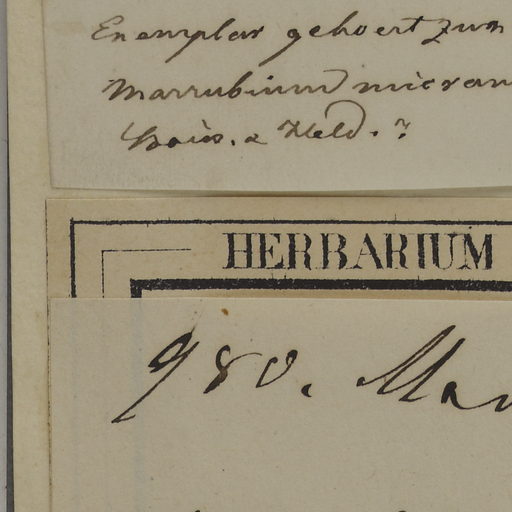 Exemplar gehoert zum
Marrubium micran
Boiss. & Held. ?
HERBARIUM
980. Mar